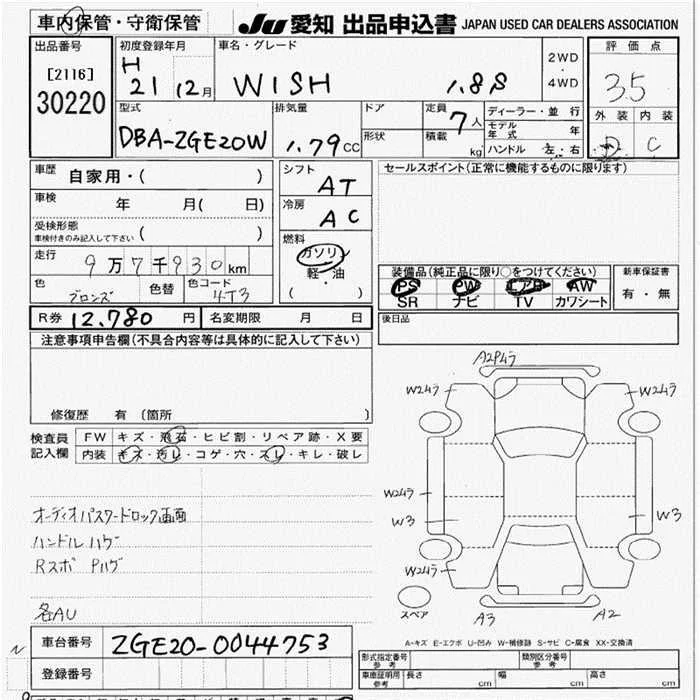 車内保管・守衛保管
JU 愛知 出品申込書 JAPAN USED CAR DEALERS ASSOCIATION
出品番号 初度登録年月 車名・グレード 評価点
[2116] H 2WD
30220 21 12月 WISH 1.8S ・ 4WD 3.5
外装 内装
D C
型式 排気量 ドア 定員 ディーラー・並行
DBA-ZGE20W 1.79CC 7人 モデル年式 年
形状 積載 kg ハンドル 左・右
車歴 自家用・( ) シフト AT セールスポイント(正常に機能するものに限ります)
車検 年 月( 日) 冷房 AC
受検形態
車検付きのみ記入して下さい ( )
燃料
走行 9万7千930km ガソリン 装備品(純正品に限り○をつけてください) 新車保証書
軽・油 PS PW エアB AW 有・無
色 ブロンズ 色替 色コード 4T3 ( ) SR ナビ TV カワシート
R券 12,780円 名変期限 月 日 後日品
注意事項申告欄(不具合内容等は具体的に記入して下さい)
修復歴 有 (箇所 )
検査員 FW キズ・飛石・ヒビ割・リペア跡・X要
記入欄 内装 キズ・汚レ・コゲ・穴・スレ・キレ・破レ
オーディオパスワードロック画面
ハンドルハゲ
Rスポ Pハゲ
各AU
A2Pムラ
W2ムラ W2ムラ
W2ムラ
W3 W3
W2ムラ
スペア A3 A2
A-キズ E-エクボ U-凹み W-補修跡 S-サビ C-腐食 XX-交換済
N 車台番号 ZGE20-0044753
登録番号
形式指定番号 参考 類別区分番号 参考
車庫証明用 参考 長さ cm 幅 cm 高さ cm